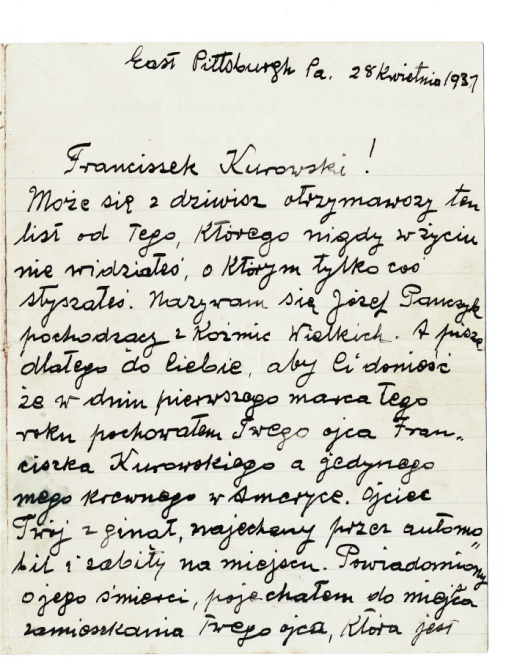 East Pittsburgh Pa. 28 Kwietnia 1937
Franciszek Kurowski!
Może się z dziwisz otrzymawszy ten
list od Tego, Którego nigdy w życiu
nie widziałeś, o Którym tylko coś
słyszałeś. Nazywam się Józef Panczyk
pochodzący z Koźmic Wielkich. A piszę
dlatego do Ciebie, aby Ci donieść
że w dniu pierwszego marca tego
roku pochowałem Twego ojca Fran„
ciszka Kurowskiego a jedynego
mego krewnego w Ameryce. Ojciec
Twój z ginął, najechany przez automo„
bil i zabity na miejscu. Powiadomiony
o jego śmierci, pojechałem do miejsca
zamieszkania Twego ojca, Która jest